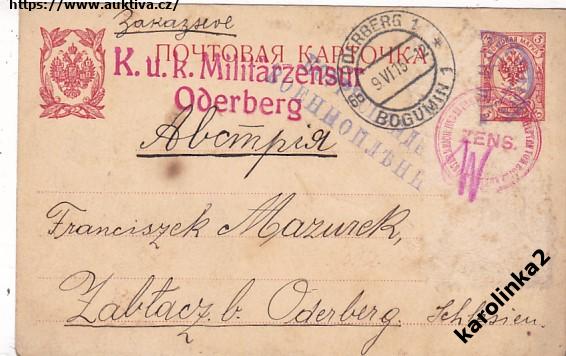 https://www.auktiva.cz/
Заказное
ПОЧТОВАЯ КАРТОЧКА
K. u. k. Militärzensur
Oderberg
ODERBERG 1
9 VI 15
BOGUMIN 1
ВОЕННОПЛѢНН
ZENS.
W
Австрія
Franciszek Mazurek,
Zabłacz. b. Oderberg. Schlesien.
karolinka2